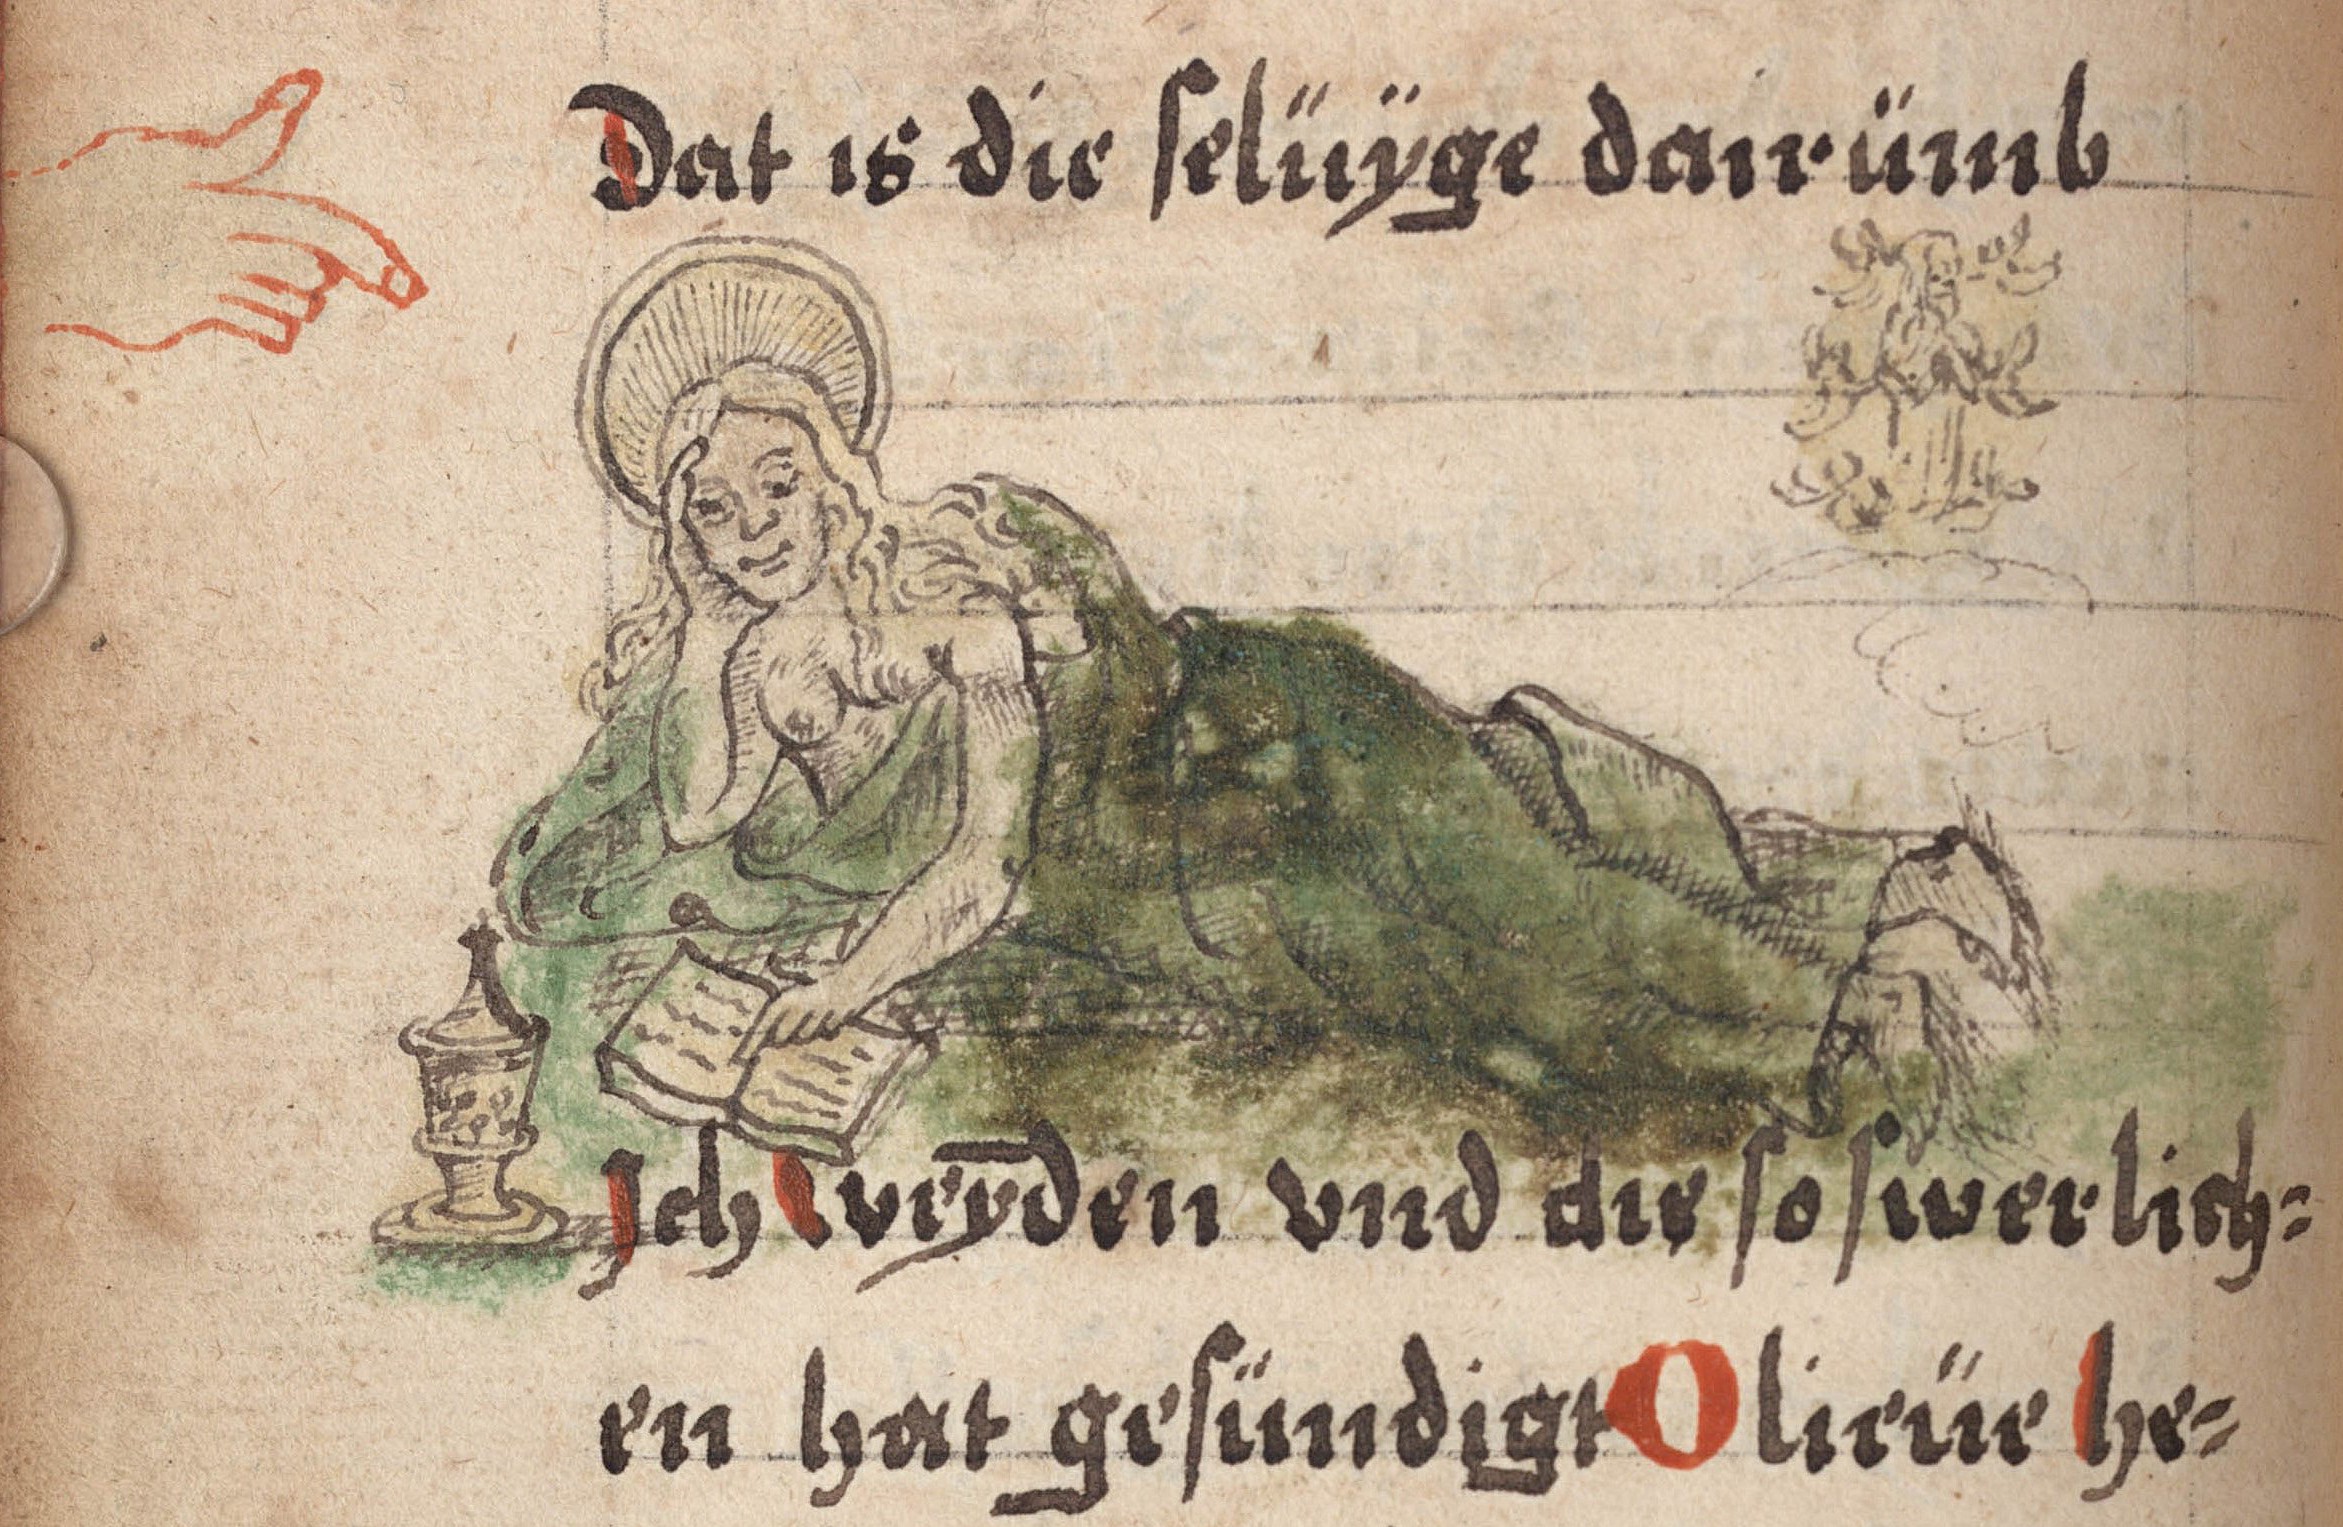 Dat is die selüÿge dairümb
Ich weÿden vnd die so swerlich=
en hat gesündigt O lieüe he=